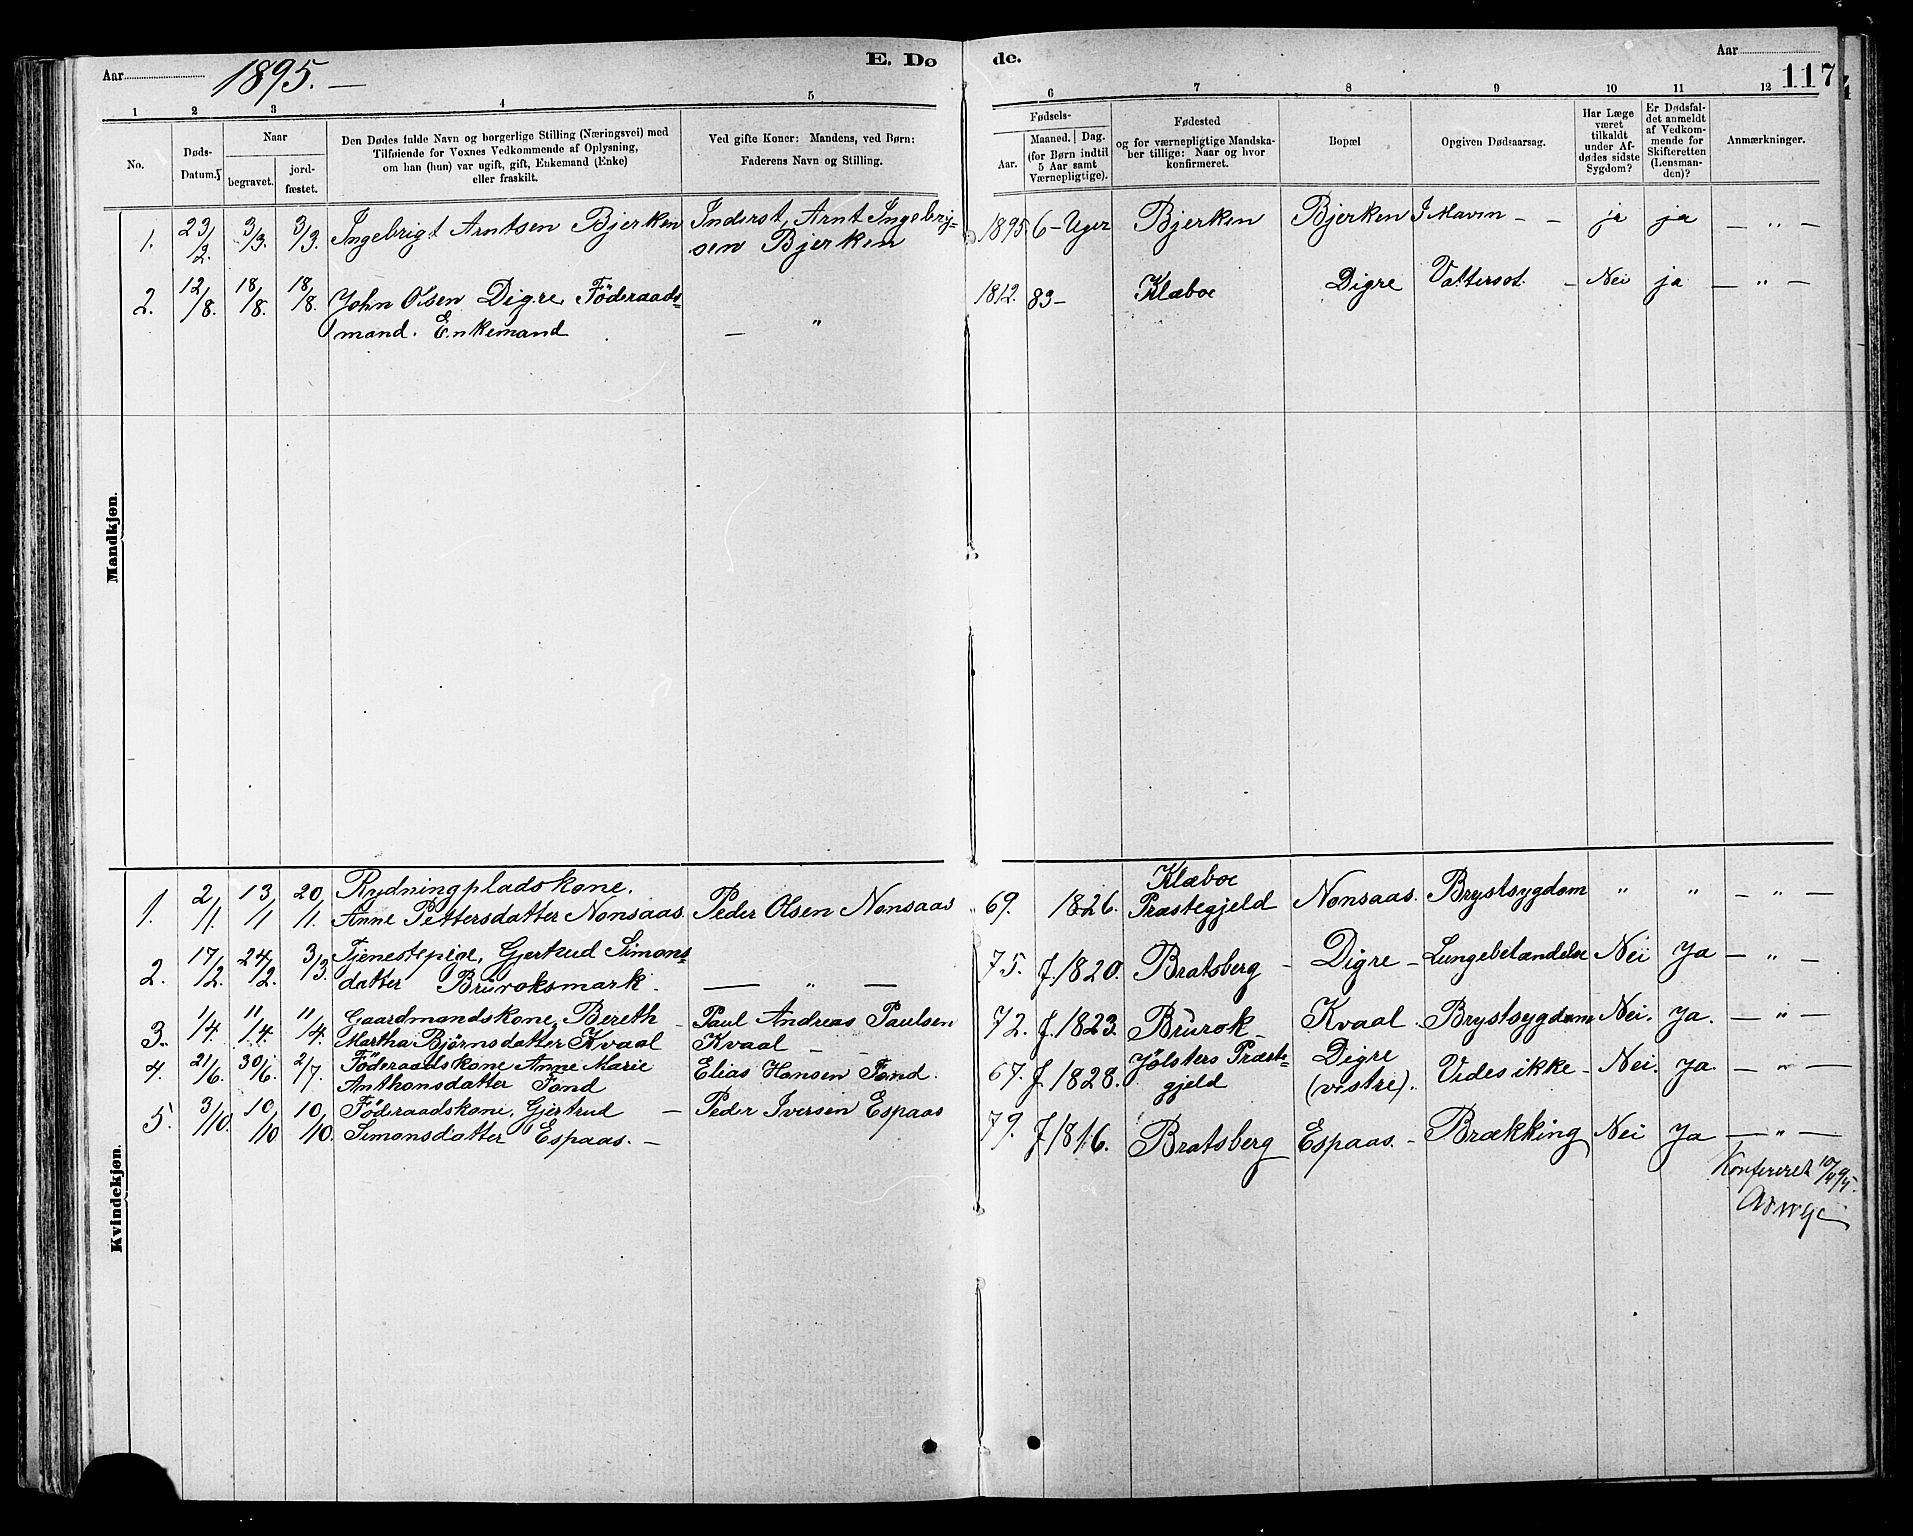 Aar 1895. —
E. Dø
de.
Aar
117
1 2 3 4 5 6 7 8 9 10 11 12
No.
Døds-Datum.
Naar
begravet.
jord-fæstet.
Den Dødes fulde Navn og borgerlige Stilling (Næringsvei) med
Tilføiende for Voxnes Vedkommende af Oplysning,
om han (hun) var ugift, gift, Enkemand (Enke)
eller fraskilt.
Ved gifte Koner: Mandens, ved Børn:
Faderens Navn og Stilling.
Fødsels-
Aar.
Maaned. Dag.
(for Børn indtil
5 Aar samt
Værnepligtige).
Fødested
og for værnepligtige Mandska-
ber tillige: Naar og hvor
konfirmeret.
Bopæl
Opgiven Dødsaarsag.
Har Læge
været
tilkaldt
under Af-
dødes sidste
Sygdom?
Er Dødsfal-
det anmeldt
af Vedkom-
mende for
Skifteretten
(Lensman-
den)?
Anmærkninger.
Mandkjøn.
1. 23/2. 3/3. 3/3. Ingebrigt Arntsen Bjerken Inderst, Arnt Ingebrig- 1895 6 - Uger Bjerken Bjerken I Maven - - ja ja — " —
sen Bjerken
2. 12/8. 18/8. 18/8. John Olsen Digre, Föderaads- 1812. 83 - Klæboe Digre Vattersot. - Nei ja — " —
mand. Enkemand — "
Kvindekjøn.
1. 2/1. 13/1 20/1. Rydningpladskone, Klæboe
Anne Pettersdatter Nonsaas. Peder Olsen Nonsaas 69. 1826. Præstegjeld Nonsaas. Brystsygdom " " — " —
2. 17/2. 24/2. 3/3. Tjenestepige, Gjertrud Simons- 75. f. 1820. Bratsberg - Digre - Lungebetændelse Nei Ja — " —
datter Bruroksmark. — " —
3. 1/4. 11/4. 11/4. Gaardmandskone, Bereth - Paul Andreas Paulsen 72. f. 1823. Brurok - Kvaal. Brystsygdom Nei. Ja. — " —
Martha Bjørnsdatter Kvaal Kvaal — —
4. 21/6. 30/6. 2/7. Föderaadskone Anne Marie Elias Hansen Fond. 67. f. 1828. Jølsters Præste- Digre Vides ikke - Nei. Ja. — " —
Anthonsdatter Fond gjeld (vestre).
5. 3/10. 10/10 10/10. Föderaadskone, Gjertrud — Peder Iversen Espaas 79. f. 1816. Bratsberg Espaas. - Brækking Nei Ja — " —
Simonsdatter Espaas. —
Konfereret